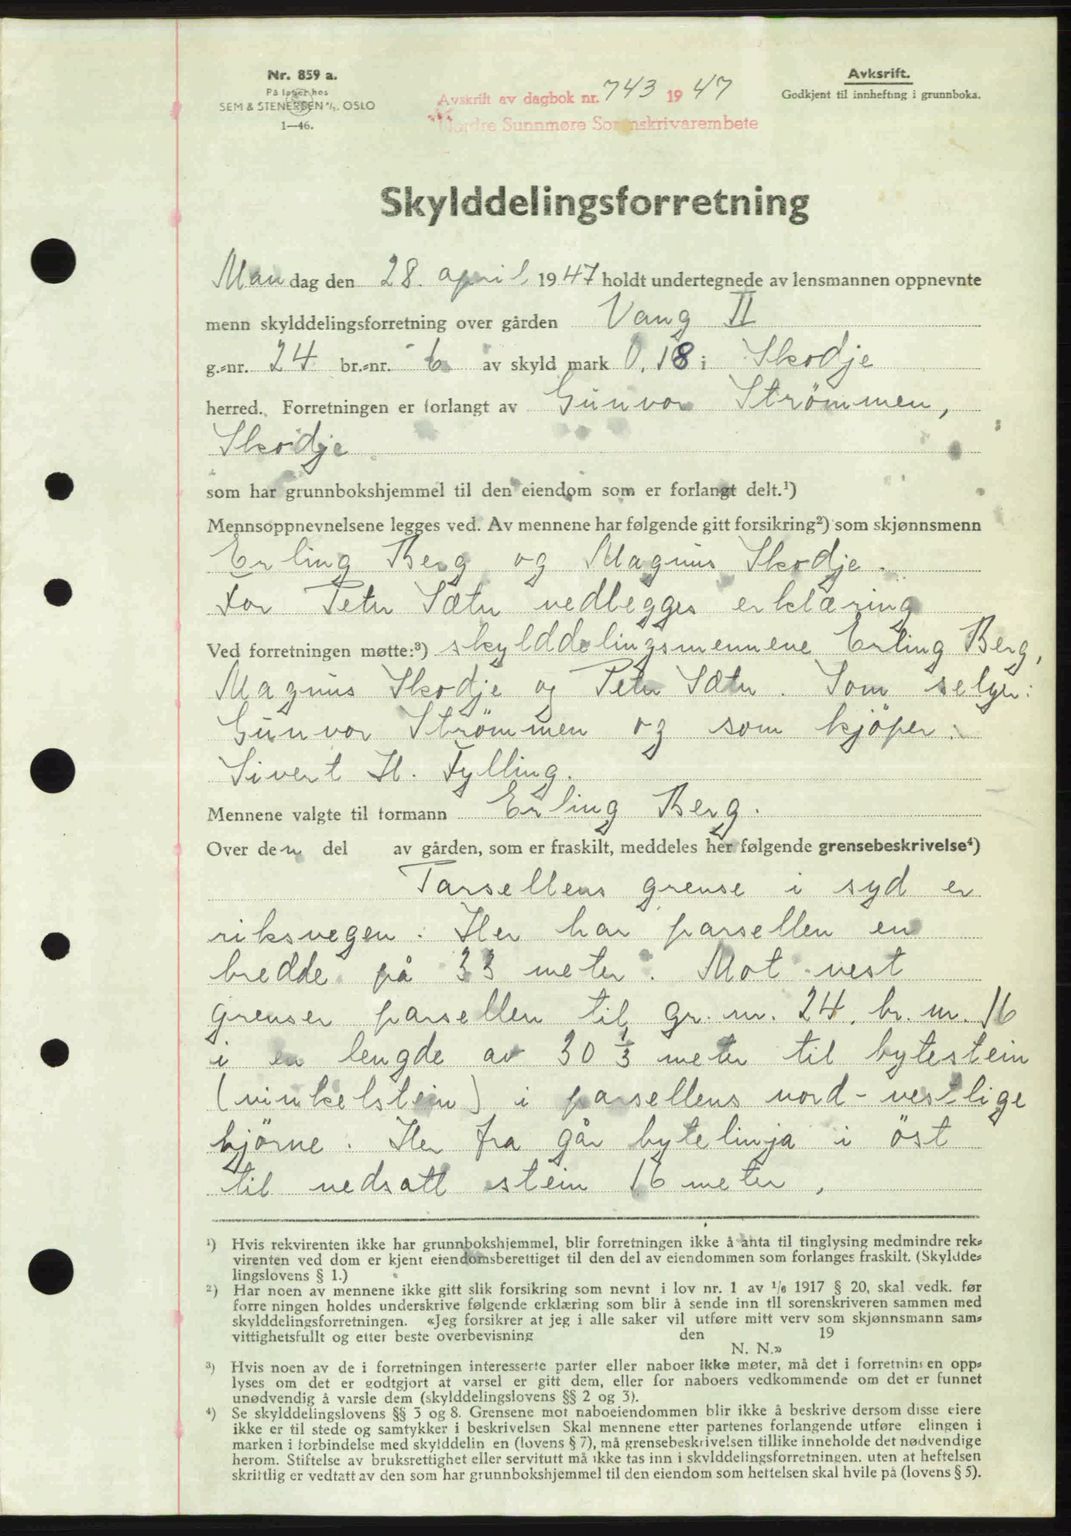 Nr. 859 a.
På lager hos
SEM & STENERSEN A/S, OSLO
1—46.
Avskrift av dagbok nr. 743 1947
Nordre Sunnmøre Sorenskrivarembete
Avksrift.
Godkjent til innhefting i grunnboka.
Skylddelingsforretning
Mandag den 28. april 1947 holdt undertegnede av lensmannen oppnevnte
menn skylddelingsforretning over gården Vang II
g.-nr. 24 br.-nr. 6 av skyld mark 0,18 i Skodje
herred. Forretningen er forlangt av Gunvor Strömmen,
Skodje
som har grunnbokshjemmel til den eiendom som er forlangt delt.¹)
Mennsoppnevnelsene legges ved. Av mennene har følgende gitt forsikring²) som skjønnsmenn
Erling Berg og Magnus Skodje.
For Peter Sæter vedlegges erklæring
Ved forretningen møtte:³) skylddelingsmennene Erling Berg,
Magnus Skodje og Peter Sæter. Som selger:
Gunvor Strömmen og som kjöper:
Sivert H. Fylling.
Mennene valgte til formann Erling Berg.
Over den del av gården, som er fraskilt, meddeles her følgende grensebeskrivelse⁴)
Parsellens grense i syd er
riksvegen. Her har parsellen en
bredde på 33 meter. Mot vest
grenser parsellen til gr. nr. 24, br. nr. 16
i en lengde av 30 1/3 meter til bytestein
(vinkelstein) i parsellens nord-vestlige
hjörne. Her fra går bytelinja i öst
til nedsatt stein 16 meter,
¹) Hvis rekvirenten ikke har grunnbokshjemmel, blir forretningen ikke å anta til tinglysing medmindre rek-
virenten ved dom er kjent eiendomsberettiget til den del av eiendommen som forlanges fraskilt. (Skyldde-
lingslovens § 1.)
²) Har noen av mennene ikke gitt slik forsikring som nevnt i lov nr. 1 av 1/6 1917 § 20, skal vedk. før
forre ningen holdes underskrive følgende erklæring som blir å sende inn til sorenskriveren sammen med
skylddelingsforretningen. «Jeg forsikrer at jeg i alle saker vil utføre mitt verv som skjønnsmann sam-
vittighetsfullt og etter beste overbevisning den 19
N. N.»
³) Hvis noen av de i forretningen interesserte parter eller naboer ikke møter, må det i forretnin­s en opp-
lyses om det er godtgjort at varsel er gitt dem, eller for naboers vedkommende om det er funnet
unødvendig å varsle dem (skylddelingslovens §§ 2 og 3).
⁴) Se skylddelingslovens §§ 3 og 8. Grensene mot naboeiendommen blir ikke å beskrive dersom disse eiere
ikke er til stede og samtykker i beskrivelsen Skal mennene etter partenes forlangende utføre elingen i
marken i forbindelse med skylddelin en (lovens § 7), må grensebeskrivelsen tillike inneholde det nødvendige
herom. Stiftelse av bruksrettighet eller servitutt må ikke tas inn i skylddelingsforretningen, uten at heftelsen
skriftlig er vedtatt av den som har grunnbokshjemmel til den eiendom som heftelsen skal hvile på (lovens § 5).